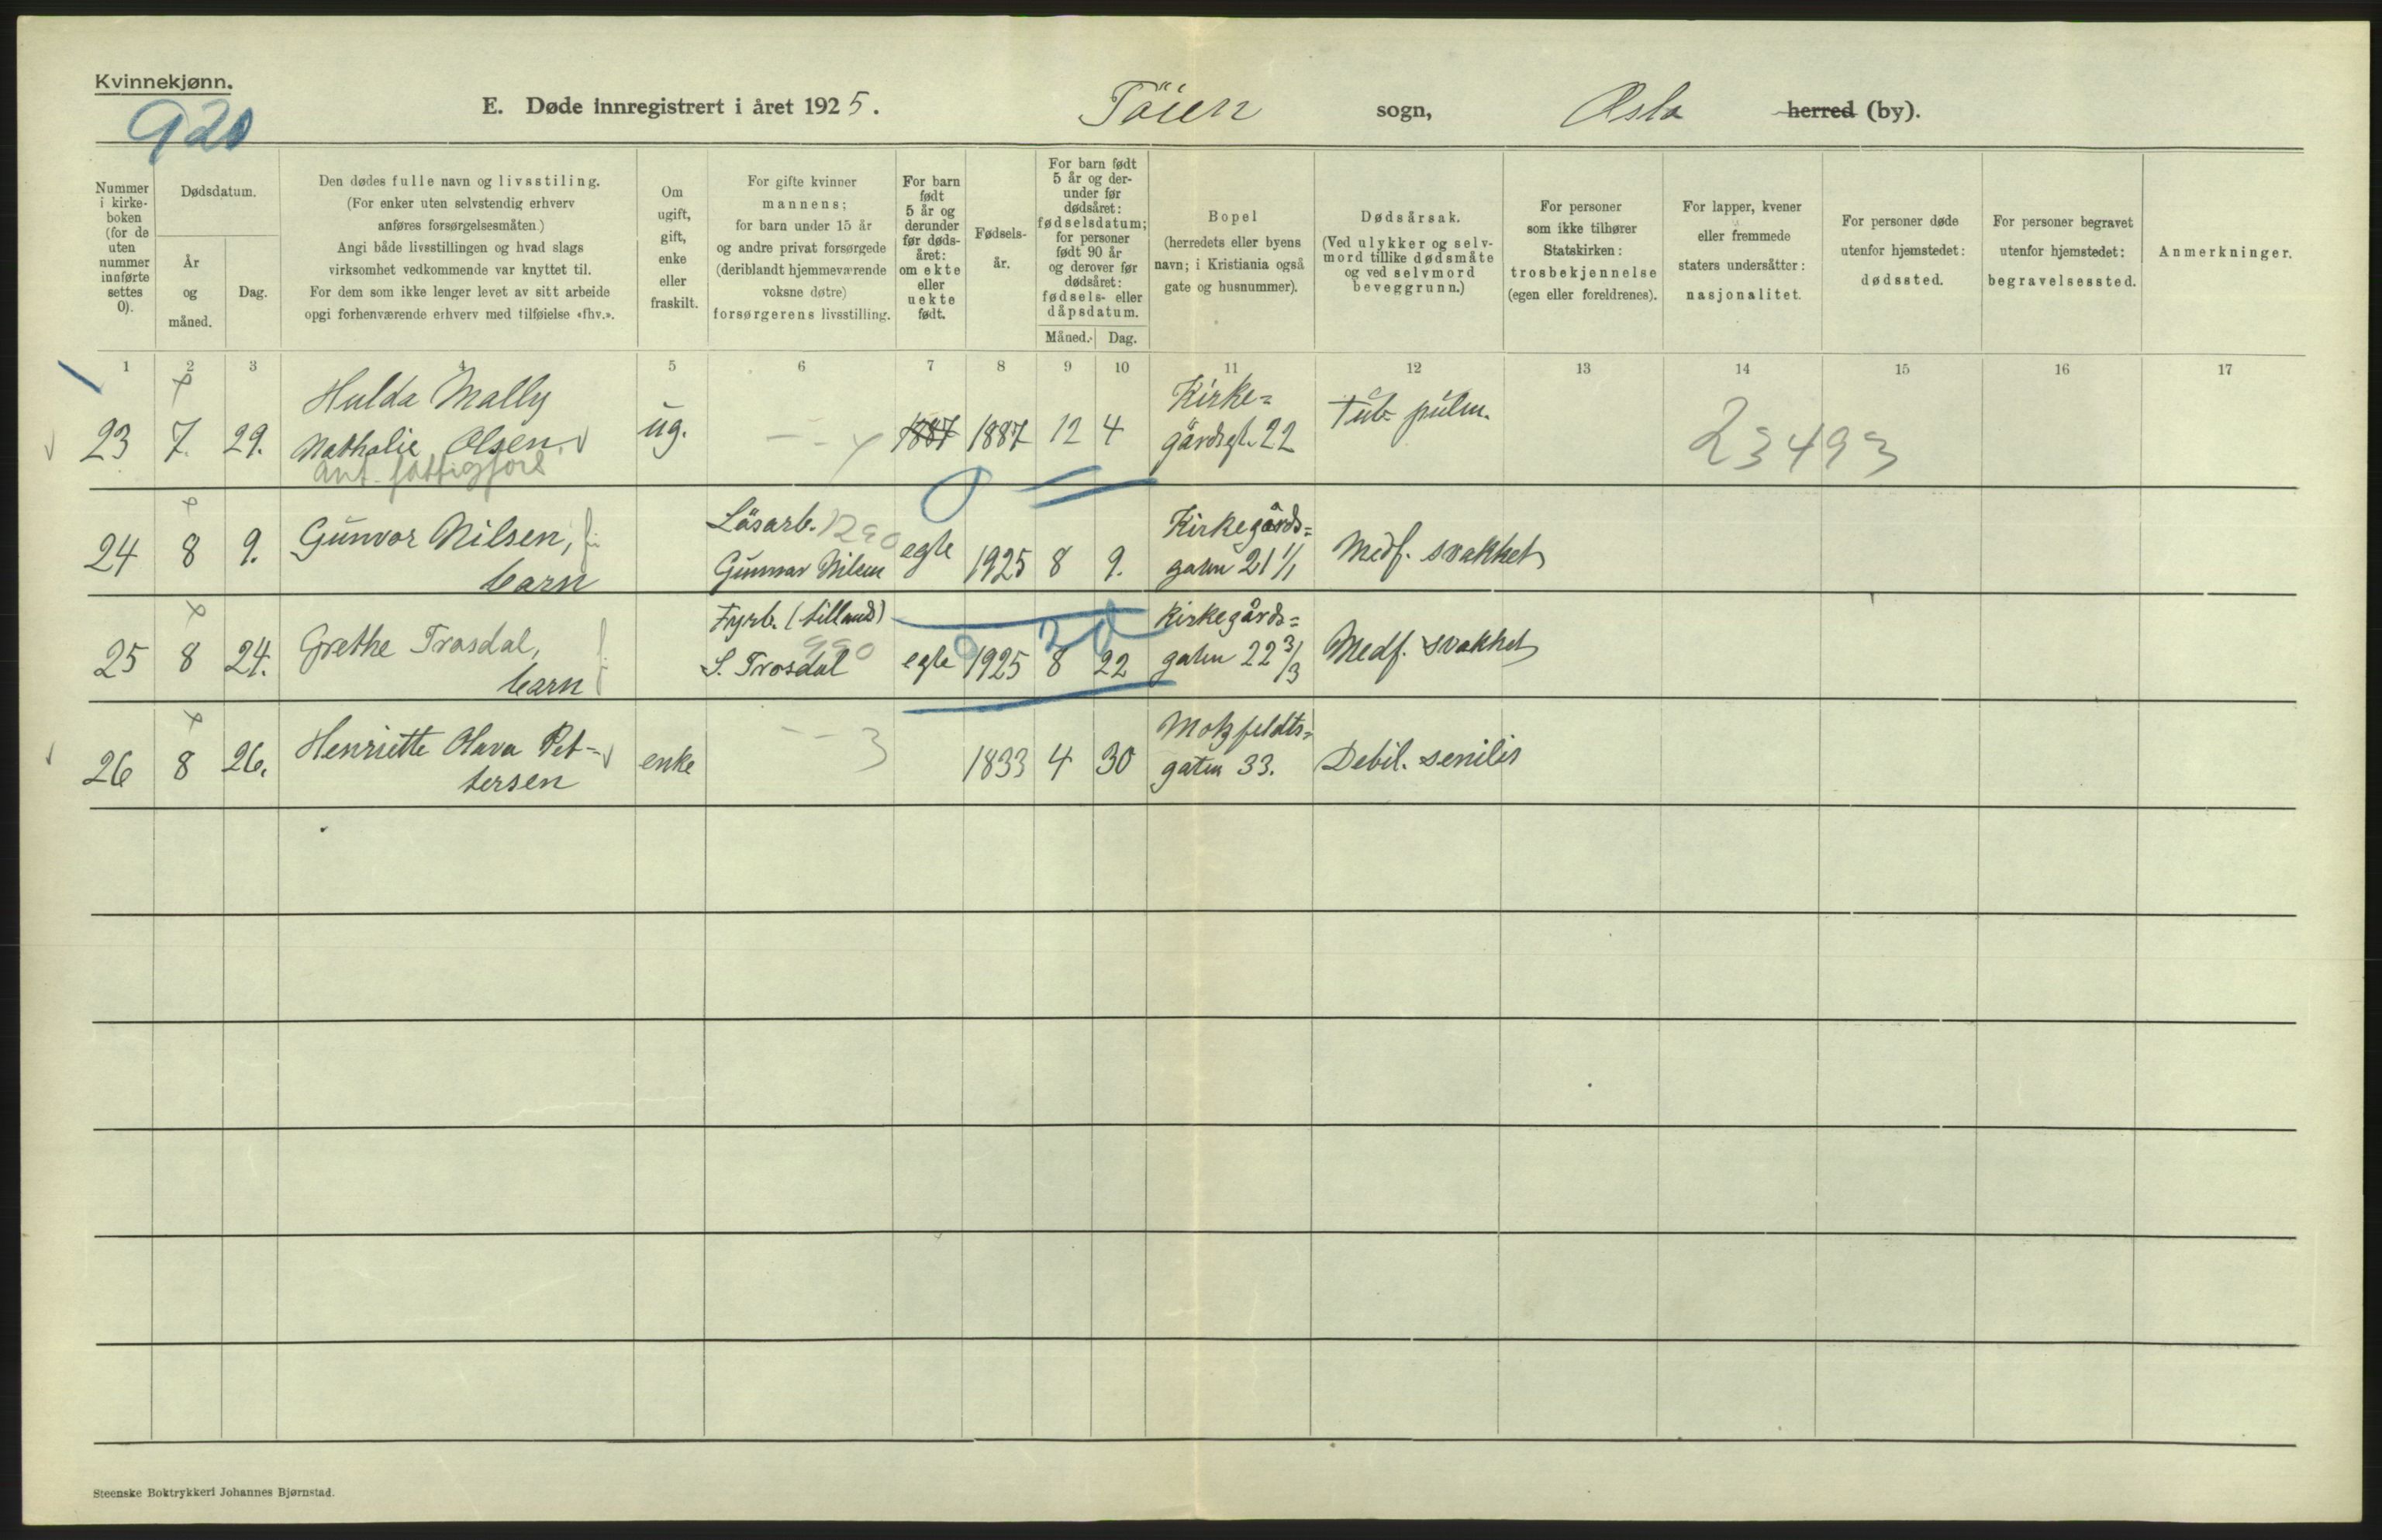 Kvinnekjønn.
920
E. Døde innregistrert i året 1925. Töien sogn, Oslo herred (by).
Nummer
i kirke-
boken
(for de
uten
nummer
innførte
settes
0).
Dødsdatum.
År
og
måned.
Dag.
Den dødes fulle navn og livsstiling.
(For enker uten selvstendig erhverv
anføres forsørgelsesmåten.)
Angi både livsstillingen og hvad slags
virksomhet vedkommende var knyttet til.
For dem som ikke lenger levet av sitt arbeide
opgi forhenværende erhverv med tilføielse «fhv.».
Om
ugift,
gift,
enke
eller
fraskilt.
For gifte kvinner
mannens;
for barn under 15 år
og andre privat forsørgede
(deriblandt hjemmeværende
voksne døtre)
forsørgerens livsstilling.
For barn
født
5 år og
derunder
før døds-
året:
om ekte
eller
uekte
født.
Fødsels-
år.
For barn født
5 år og der-
under før
dødsåret:
fødselsdatum;
for personer
født 90 år
og derover før
dødsåret:
fødsels- eller
dåpsdatum.
Måned. Dag.
Bopel
(herredets eller byens
navn; i Kristiania også
gate og husnummer).
Dødsårsak.
(Ved ulykker og selv-
mord tillike dødsmåte
og ved selvmord
beveggrunn.)
For personer
som ikke tilhører
Statskirken:
trosbekjennelse
(egen eller foreldrenes).
For lapper, kvener
eller fremmede
staters undersåtter:
nasjonalitet.
For personer døde
utenfor hjemstedet:
dødssted.
For personer begravet
utenfor hjemstedet:
begravelsessted.
Anmerkninger.
1 2 3 4 5 6 7 8 9 10 11 12 13 14 15 16 17
Hulda Mally Kirke=
23 7. 29. Nathalie Olsen. ug. 1887 1887 12 4 gårdsgt. 22 Tub. pulm. 23493
Ant. fattigfors
Läsarb. 1290 Kirkegårds=
24 8 9. Gunvor Nilsen, Gunnar Nilsen egte 1925 8 9. gaten 21 1/1 Medf. svakhet
barn
Fyrb. (Lilland) 30 Kirkegårds=
990
25 8 24. Grethe Trosdal, S. Trosdal egte 0 1925 8 22 gaten 22 3/3 Medf. svakhet
barn
Motzfeldts=
26 8 26. Henriette Olava Pet= enke 3 1833 4 30 gaten 33. Debil. senilis
tersen
Steenske Boktrykkeri Johannes Bjørnstad.